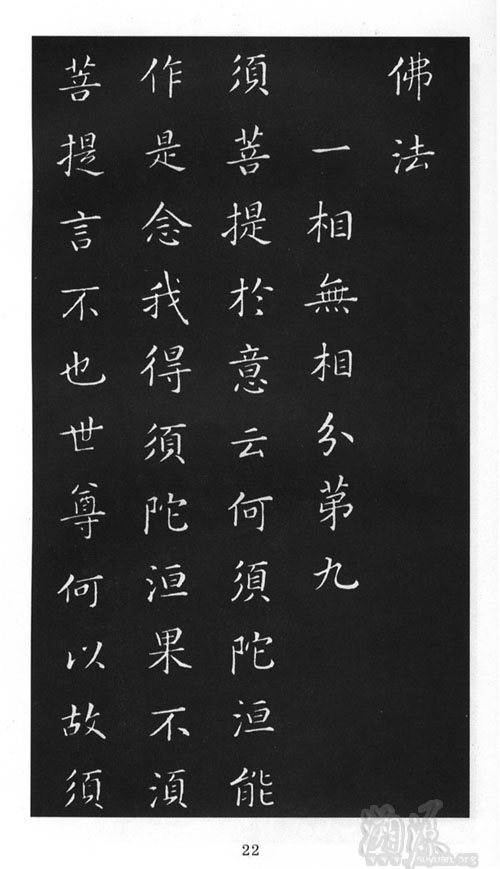 佛法
一相無相分苐九
須菩提於意云何須陀洹能
作是念我得須陀洹果不湏
菩提言不也世尊何以故須
22
溯源
www.suyuan.org